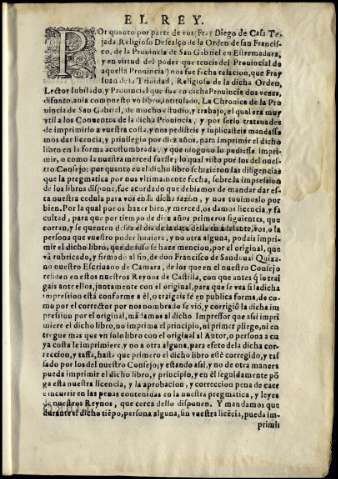 EL REY.
POr quanto por parte de vos Fray Diego de Casa Te-
jada Religioso Descalço de la Orden de san Francis-
co, de la Prouincia de San Gabriel en Estremadura,
y en virtud del poder que teneis del Prouincial de
aquella Prouincia, nos fue fecha relacion, que Fray
Iuan de la Trinidad, Religioso de la dicha Orden,
Lector Iubilado, y Prouincial que fue en dicha Prouincia dos vezes,
difunto, auia compuesto vn libro, intitulado, La Chronica de la Pro
uincia de San Gabriel, de mucho estudio, y trabajo, el qual era muy
vtil a los Conuentos de la dicha Prouincia, y por serlo tratauades
de imprimirlo a vuestra costa, y nos pedisteis y suplicasteis mandasse
mos dar licencia, y priuilegio por diez años, para imprimir el dicho
libro en la forma acostumbrada, y que ninguno lo pudiesse impri-
mir, o como la nuestra merced fuesse; lo qual visto por los del nues-
tro Consejo, por quanto en el dicho libro se hizieron las diligencias
que la pregmatica por nos vltimamente fecha, sobre la impression
de los libros dispone, fue acordado que deuiamos de mandar dar es-
ta nuestra cedula para vos en la dicha razon, y nos tuuimoslo por
bien. Por la qual por os hazer bien, y merced, os damos licencia, y fa
cultad, para que por tiempo de diez años primeros siguientes, que
corran, y se quenten desde el dia de la data della en adelante, vos, o la
persona que vuestro poder huuiere, y no otra alguna, podais imprimir
el dicho libro, que de suso se haze mencion, por el original, que
và rubricado, y firmado al fin, de don Francisco de Sandoual Quiza-
no nuestro Escriuano de Camara, de los que en el nuestro Consejo
residen en estos nuestros Reynos de Castilla, con que antes q̃ se trai
gais ante ellos, juntamente con el original, para que se vea si la dicha
impression està conforme a èl, o traigais fe en publica forma, de co-
mo por el corrector por nos nombrado se viò, y corrigiò la dicha im
pression por el original, mãdamos al dicho Impressor que assi impri
miere el dicho libro, no imprima el principio, ni primer pliego, ni en
tregue mas que vn solo libro con el original al Autor, o persona a cu
ya costa le imprimiere, y no a otra alguna, para efeto de la dicha cor-
reccion, y tassa, hasta que primero el dicho libro estè corregido, y tas
sado por los del nuestro Consejo; y estando assi, y no de otra manera
pueda imprimir el dicho libro, y principio, y en el seguidamente põ
ga esta nuestra licencia, y la aprobacion, y correccion pena de cãer
e incurrir en las penas contenidas en la nuestra pregmatica, y leyes
de nuestros Reynos, que cerca dello disponen. Y mandamos que
durante el dicho tiẽpo, persona alguna, sin vuestra licẽcia, pueda im-
primir